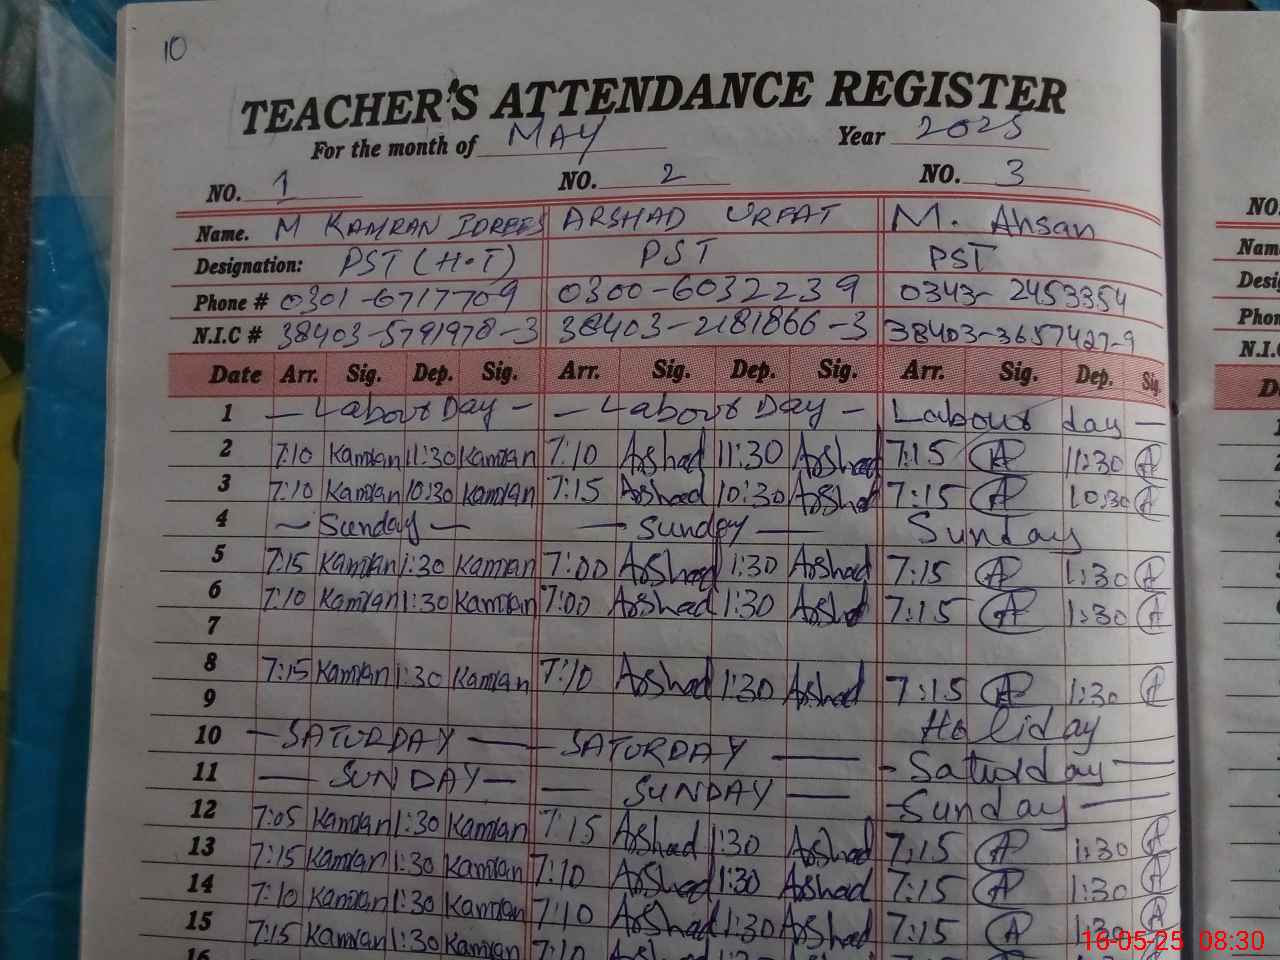 10
TEACHER'S ATTENDANCE REGISTER
For the month of MAY Year 2025
NO. 1 NO. 2 NO. 3
Name. M KAMRAN IDREES ARSHAD URFAT M. Ahsan
Designation: PST (H.T) PST PST
Phone # 0301-6717709 0300-6032239 0343-2453354
N.I.C # 38403-5791978-3 38403-2181866-3 38403-3657427-9
Date Arr. Sig. Dep. Sig. Arr. Sig. Dep. Sig. Arr. Sig. Dep. Sig.
1 — Labour Day — — Labour Day — Labour day —
2 7:10 Kamran 11:30 Kamran 7:10 Arshad 11:30 Arshad 7:15 A 11:30 A
3 7:10 Kamran 10:30 Kamran 7:15 Arshad 10:30 Arshad 7:15 A 10:30 A
4 — Sunday — — Sunday — Sunday
5 7:15 Kamran 1:30 Kamran 7:00 Arshad 1:30 Arshad 7:15 A 1:30 A
6 7:10 Kamran 1:30 Kamran 7:00 Arshad 1:30 Arshad 7:15 A 1:30 A
7
8 7:15 Kamran 1:30 Kamran 7:10 Arshad 1:30 Arshad 7:15 A 1:30 A
9 Holiday
10 — SATURDAY — SATURDAY — - Saturday —
11 — SUNDAY — — SUNDAY — - Sunday —
12 7:05 Kamran 1:30 Kamran 7:15 Arshad 1:30 Arshad 7:15 A 1:30 A
13 7:15 Kamran 1:30 Kamran 7:10 Arshad 1:30 Arshad 7:15 A 1:30 A
14 7:10 Kamran 1:30 Kamran 7:10 Arshad 1:30 Arshad 7:15 A 1:30 A
15 7:15 Kamran 1:30 Kamran 7:10
16
NO.
N.I.C
16-05-25 08:30